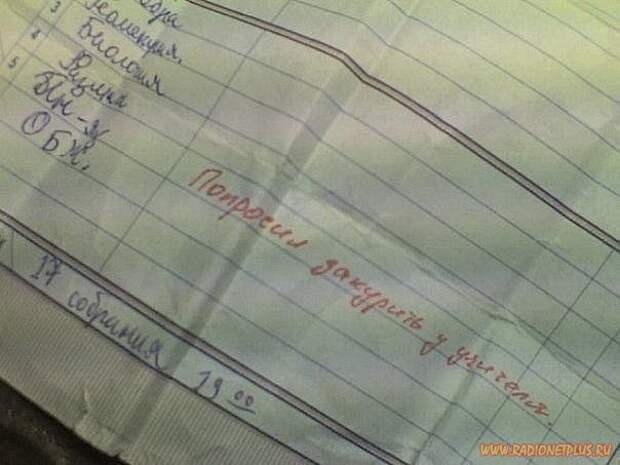 3 Геометрия.
4 Биология
5 Физика
Ин-яз
ОБЖ.
Попросил закурить у учителя.
17 собрания 19 00
WWW.RADIONETPLUS.RU